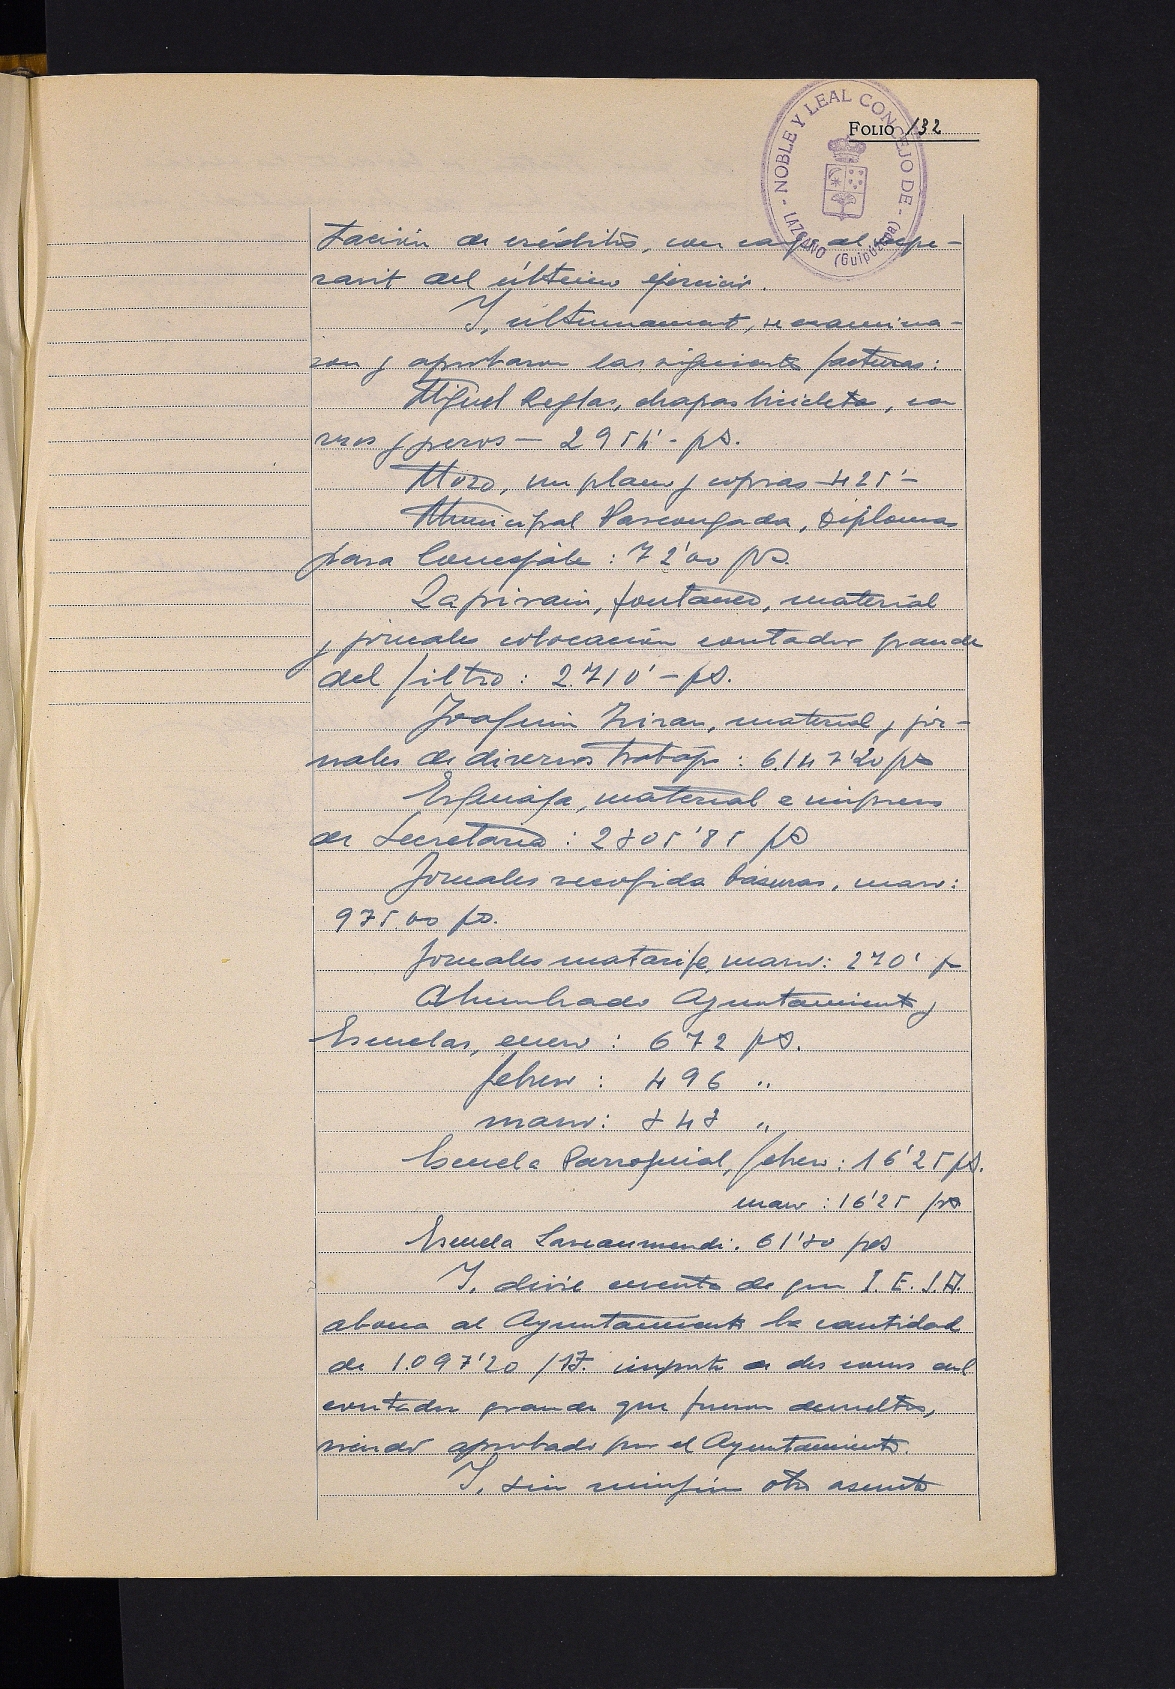 NOBLE Y LEAL CONCEJO DE
LAZCANO (Guipúzcoa)
FOLIO 132
tación de créditos, con cargo al supe-
ravit del último ejercicio.
Y, ultimamente, se examina-
ron y aprobaron las siguientes facturas:
Miguel Reglas, chapas bicicleta, ca
rros y perros — 295 - pts.
Mozo, un plano y copias 425'-
Municipal Vascongada, Diploma
para Concejales : 72'00 pts.
Zapirain, fontanero, material
y jornales colocación contador grande
del filtro : 2.710'- pts.
Joaquin material y jor-
nales de diversos trabajos : 6.147'20 pts
material e impresos
de Secretaria : 2805'85 pts
Jornales recogida básuras, marzo:
975.00 pts.
Jornales matarife, marzo: 270' p
Alumbrado Ayuntamiento y
Escuelas, enero : 672 pts.
febrero : 496 "
marzo : 848 "
Escuela Parroquial, febrero : 16'25 pts.
marzo : 16'25 pts
Escuela Lazcaumendi. 61'80 pts
Y, dióse cuenta de que I.E.S.A.
abona al Ayuntamiento la cantidad
de 1.097'20 importe de dos conos del
contador grande que fueron devueltos,
siendo aprobado por el Ayuntamiento.
Y, sin ningún otro asunto